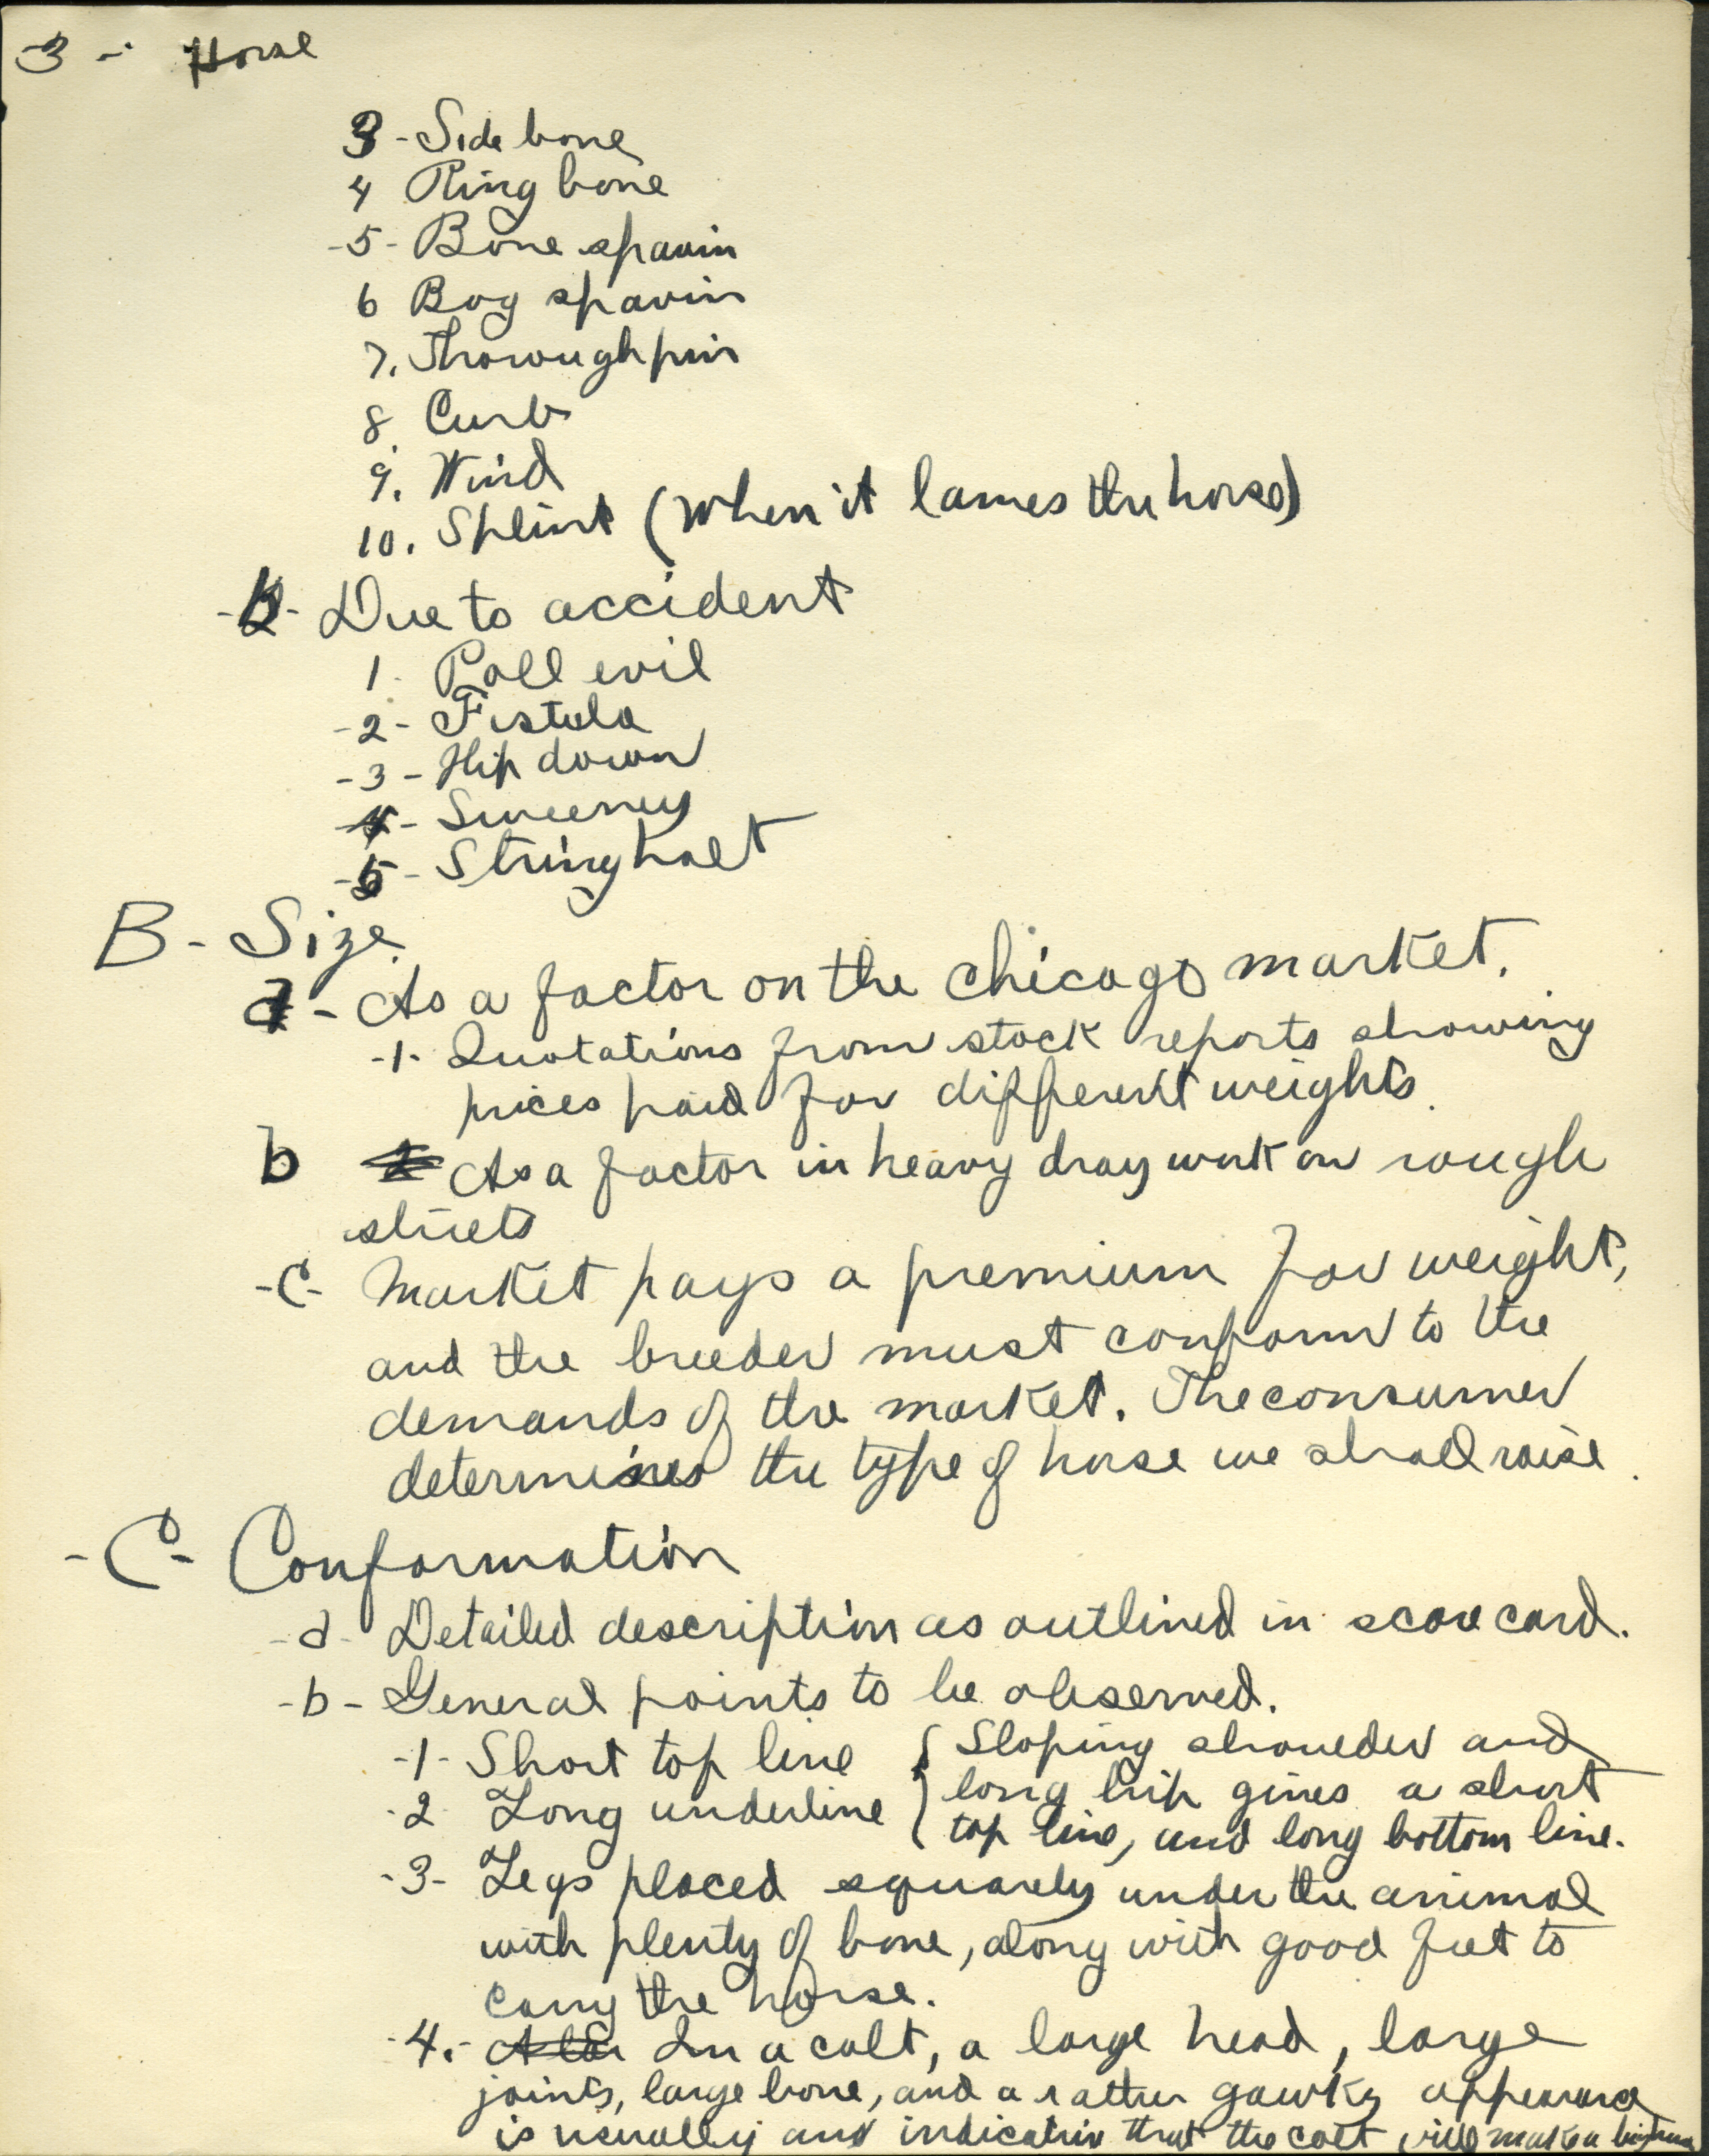 -3- Horse
3 - Side bone
4 Ring bone
-5- Bone spavin
6 Bog spavin
7. Thoroughpin
8. Curb
9. Wind
10. Splint (When it lames the horse)
-b- Due to accident
1- Poll evil
-2- Fistula
-3- Hip down
-4- Sweeney
-5- Stringhalt
B- Size
a- As a factor on the Chicago market.
-1- Quotations from stock reports showing
prices paid for different weights.
b As a factor in heavy dray work on rough
streets
-C- Market pays a premium for weight,
and the breeder must conform to the
demands of the market. The consumer
determines the type of horse we shall raise.
-C- Conformation
-a- Detailed description as outlined in score card.
-b- General points to be observed.
-1- Short top line { Sloping shoulder and
-2- Long underline { long hip gives a short
top line, and long bottom line.
-3- Legs placed squarely under the animal
with plenty of bone, along with good feet to
carry the horse.
-4.- In a colt, a large head, large
joints, large bone, and a rather gawky appearance
is usually an indication that the colt will make a